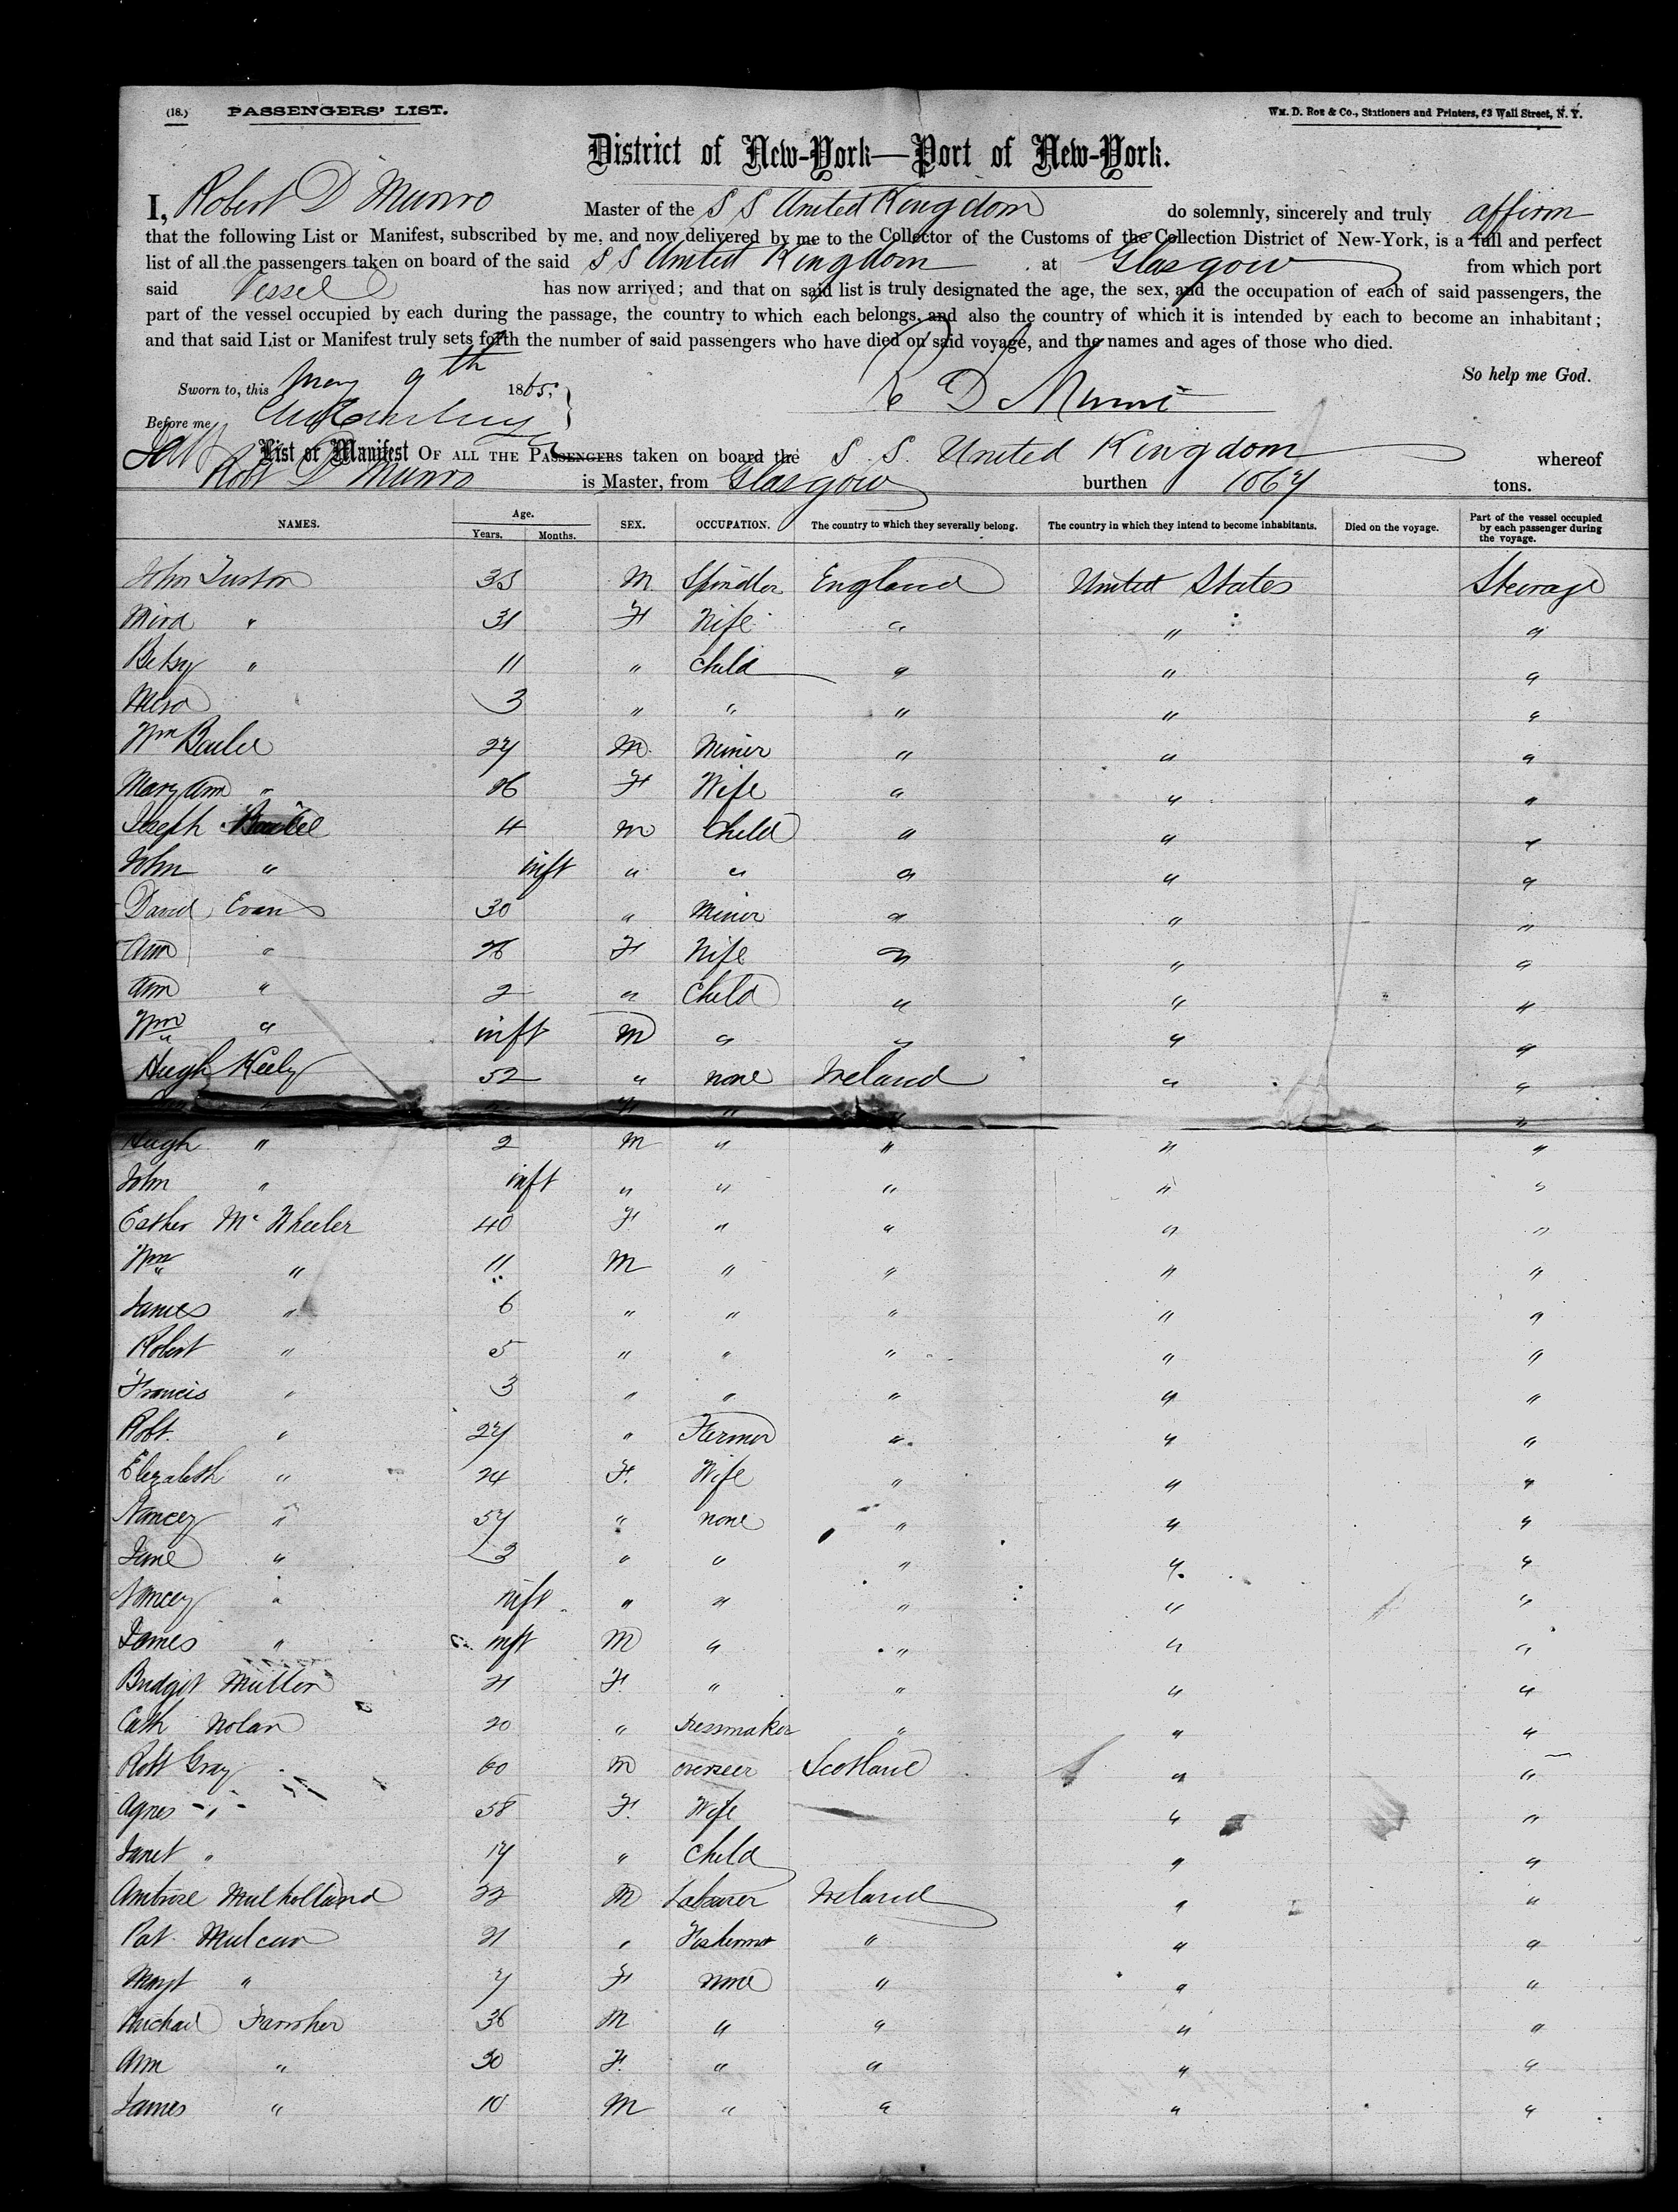 (18.) PASSENGERS' LIST. Wm. D. Roe & Co., Stationers and Printers, 63 Wall Street, N. Y.
District of New-York—Port of New-York.
I, Robert D Munro Master of the S S United Kingdom do solemnly, sincerely and truly affirm
that the following List or Manifest, subscribed by me, and now delivered by me to the Collector of the Customs of the Collection District of New-York, is a full and perfect
list of all the passengers taken on board of the said S S United Kingdom at Glasgow from which port
said Vessel has now arrived; and that on said list is truly designated the age, the sex, and the occupation of each of said passengers, the
part of the vessel occupied by each during the passage, the country to which each belongs, and also the country of which it is intended by each to become an inhabitant;
and that said List or Manifest truly sets forth the number of said passengers who have died on said voyage, and the names and ages of those who died.
So help me God.
Sworn to, this May 9th 1865. R D Munro
Before me
List or Manifest OF ALL THE PASSENGERS taken on board the S. S. United Kingdom whereof
Robt D Munro is Master, from Glasgow burthen 1067 tons.
NAMES. Age. Years. Months. SEX. OCCUPATION. The country to which they severally belong. The country in which they intend to become inhabitants. Died on the voyage. Part of the vessel occupied by each passenger during the voyage.
John 35 M England United States Steerage
" 31 F Wife " " "
Betsy " 11 " Child " " "
3 " " " " "
Wm 27 M Miner " " "
Mary Ann " 26 F Wife " " "
Joseph 4 M Child " " "
John " inft " " " " "
David Evans 30 " Miner " " "
Ann " 26 F Wife " " "
Ann " 2 " Child " " "
Wm " inft M " " " "
Hugh Keely 52 " none Ireland " "
" F " " "
Hugh " 2 M " " " "
John " inft " " " " "
Esther Mc Wheeler 40 F " " " "
Wm " 11 M " " " "
James " 6 " " " " "
Robert " 5 " " " " "
Francis " 3 " " " " "
Robt. " 27 " Farmer " " "
Elizabeth " 24 F. Wife " " "
Nancy " 57 " none " " "
Jane " 3 " " " " "
Nancy " inft " " " " "
James " inft M " " " "
Bridgit 21 F. " " " "
Cath Nolan 20 " Dressmaker " " "
Robt Gray 60 M overseer Scotland " "
Agnes " 58 F. Wife " "
Janet " 17 " Child " "
Ambrose Mulholland 22 M Labourer Ireland " "
Pat. 21 " " " "
Margt " 7 F none " " "
Michael 36 M " " " "
Ann " 30 F. " " " "
James " 10 M " " " "